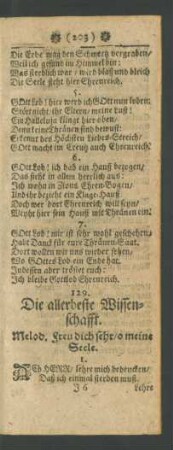 ❧ ( 203 ) ❧
Die Erde mag den Schmertz vergraben/
Weil ich gesund im Himmel bin:
Was sterblich war / wird blaß und bleich
Die Seele steht hier Ehrenreich.
5.
Gott Lob! hier werd ich GOtt
nicht, ihr Eltern/ meine Lust!
Ein Halleluja klingt hier oben/
Denn keine Thränen sind bewust:
des Höchsten Liebes-Streich/
GOtt macht im Creutz auch Ehrenreich.
6.
Gott Lob! ich hab ein Hauß bezogen/
Das sieht in allem herrlich aus:
Ich wohn in Ehren-Bogen/
Und ihr bezieht ein Klage-Hauß
Doch wer dort Ehrenreich will seyn/
sein Hauß mit Thränen ein.
7.
Gott Lob! mir ist sehr wohl geschehen/
Habt Danck für eure Thränen-Saat.
Dort wollen wir uns wieder sehen/
Wo GOttes Lob ein Ende hat.
Indessen aber tröstet euch:
Ich bleibe Gottlob Ehrenreich.
129.
Die allerbeste Wissen-
schafft.
Melod. Freu dich sehr/ o meine
Seele.
1.
HERR/ lehre mich bedencken/
Daß ich einmal sterben muß.
J 6 Lehre